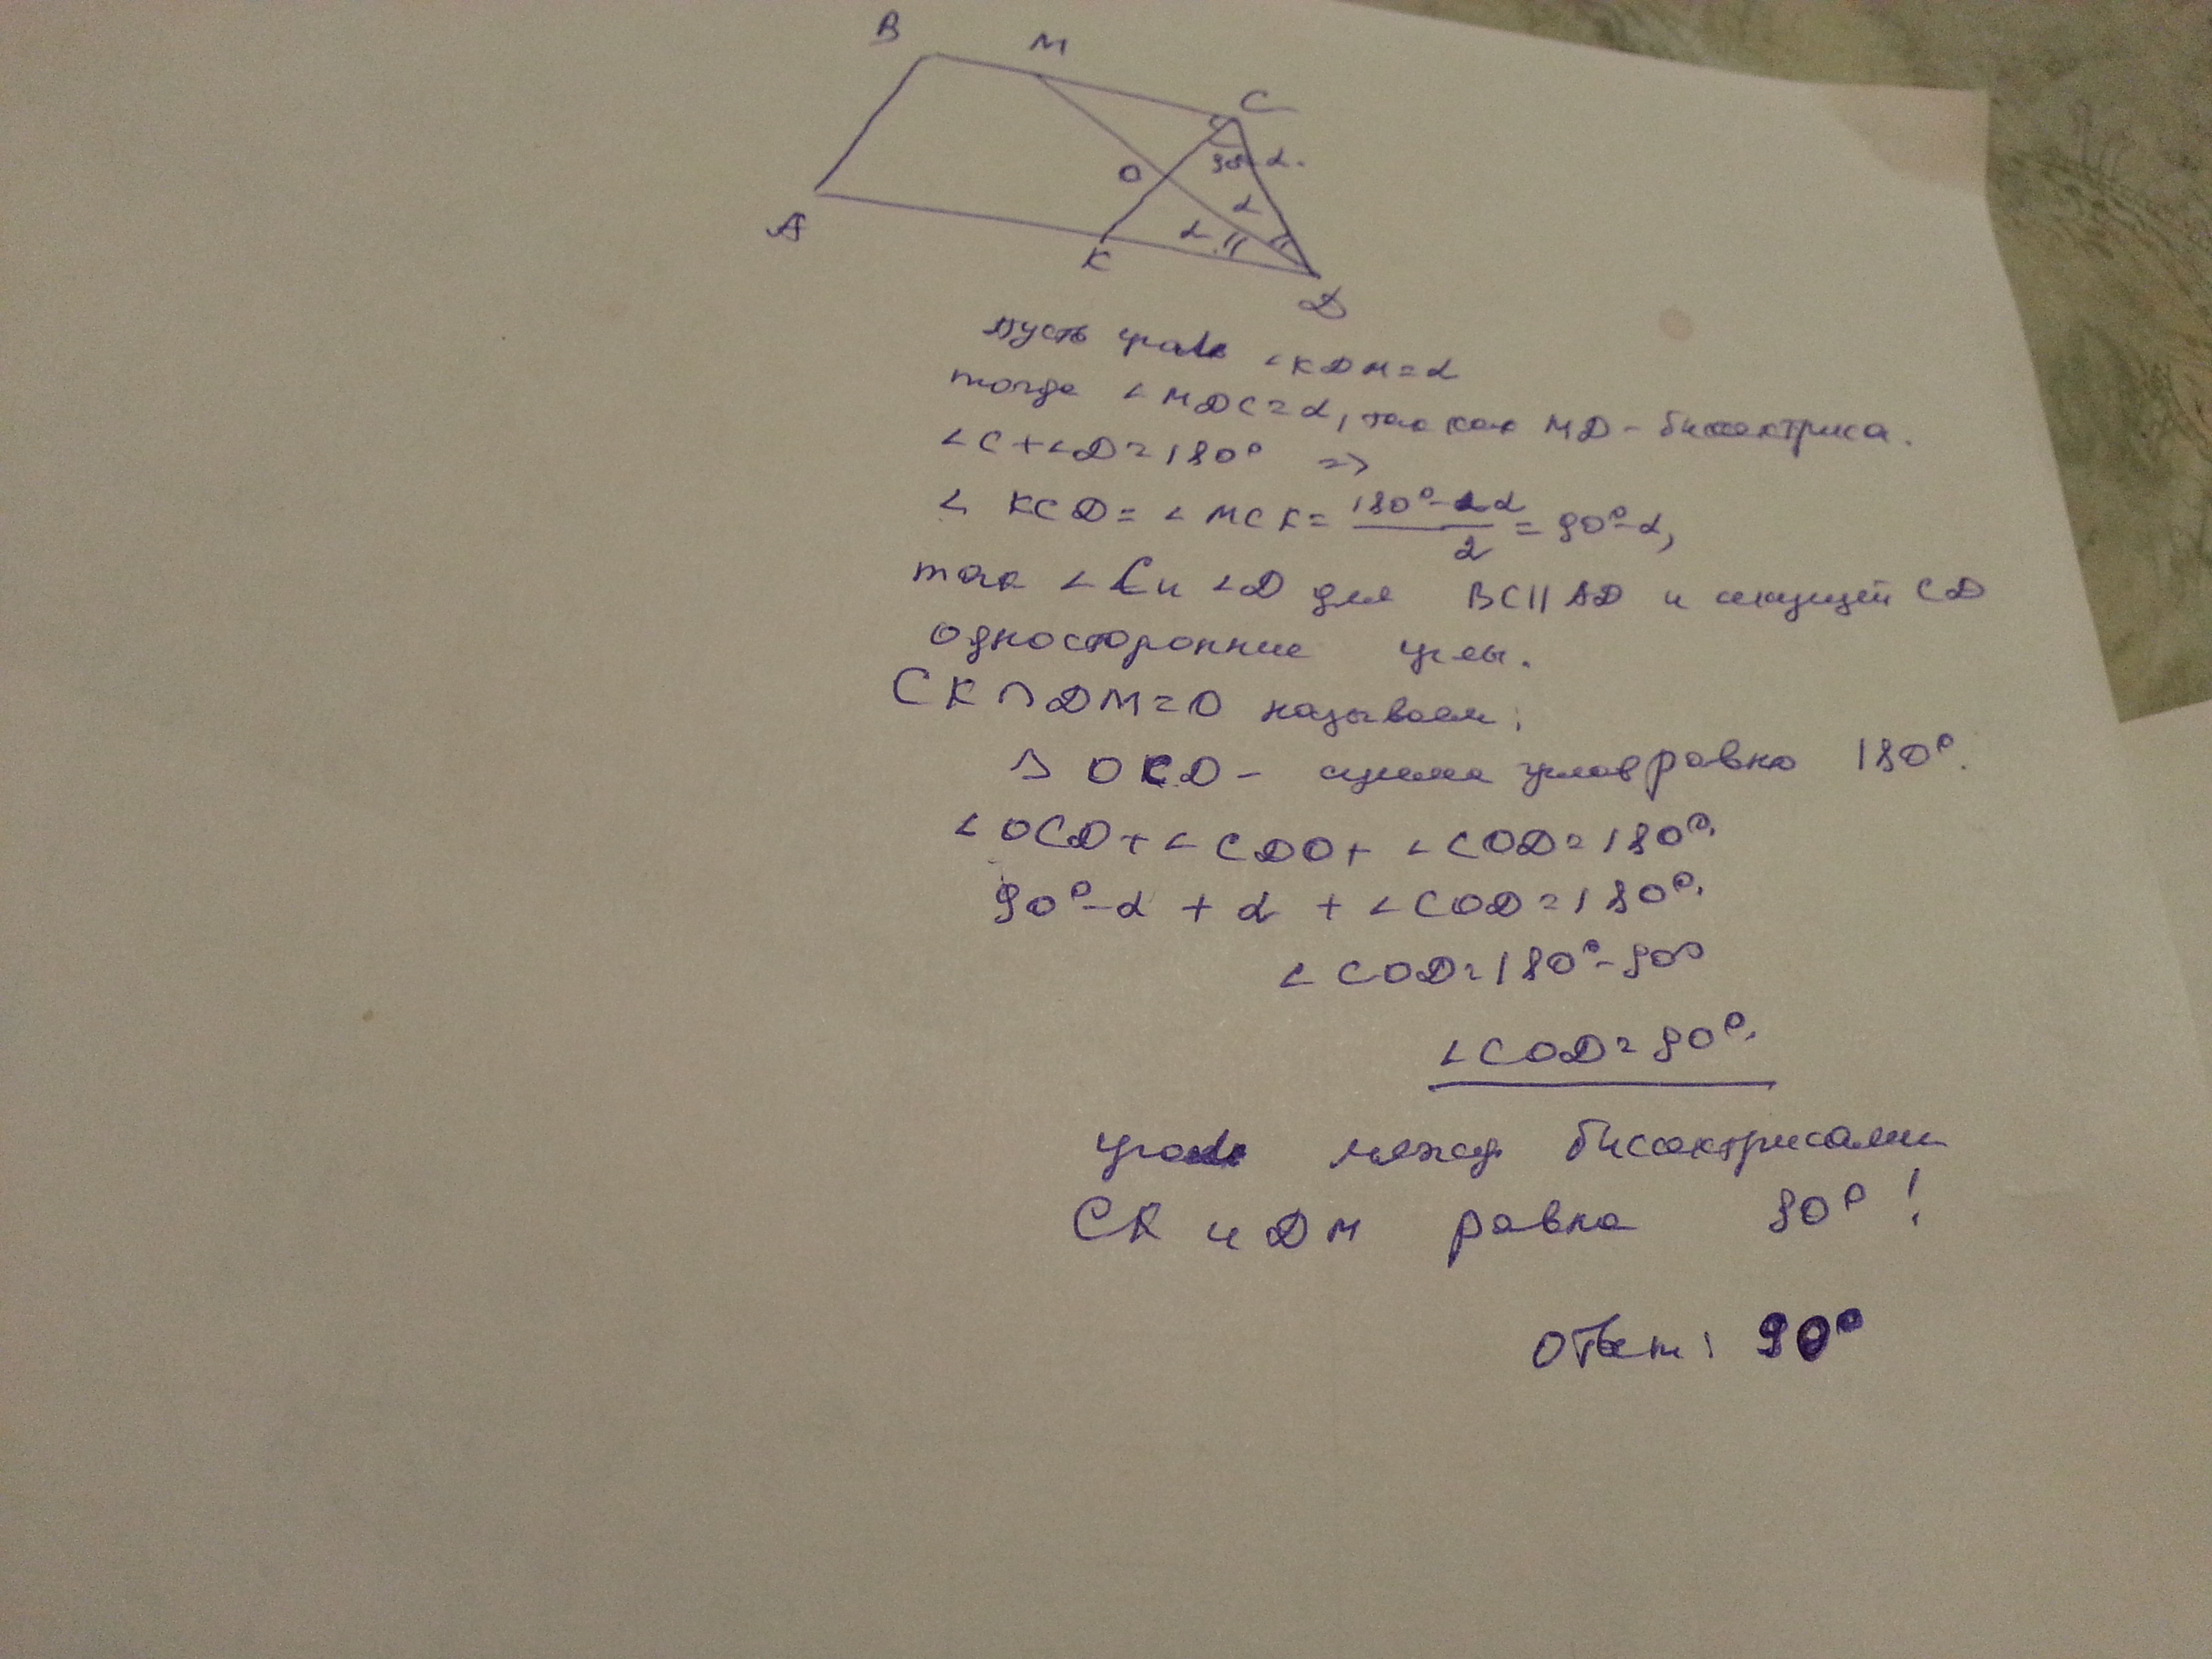 B M C
O 90-α.
α
A K α D
Пусть угол ∠KDM=α
тогда ∠MDC=α, так как MD - биссектриса.
∠C+∠D=180° =>
∠ KCD = ∠MCK = (180°-2α)/2 = 90°-α,
так ∠C и ∠D для BC||AD и секущей CD
односторонние углы.
CK∩DM=O называем.
Δ OCD - сумма углов равна 180°.
∠OCD+∠CDO+ ∠COD=180°.
90°-α + α + ∠COD=180°.
∠COD=180°-90°
∠COD=90°.
угол между биссектрисами
CK и DM равна 90°!
Ответ: 90°